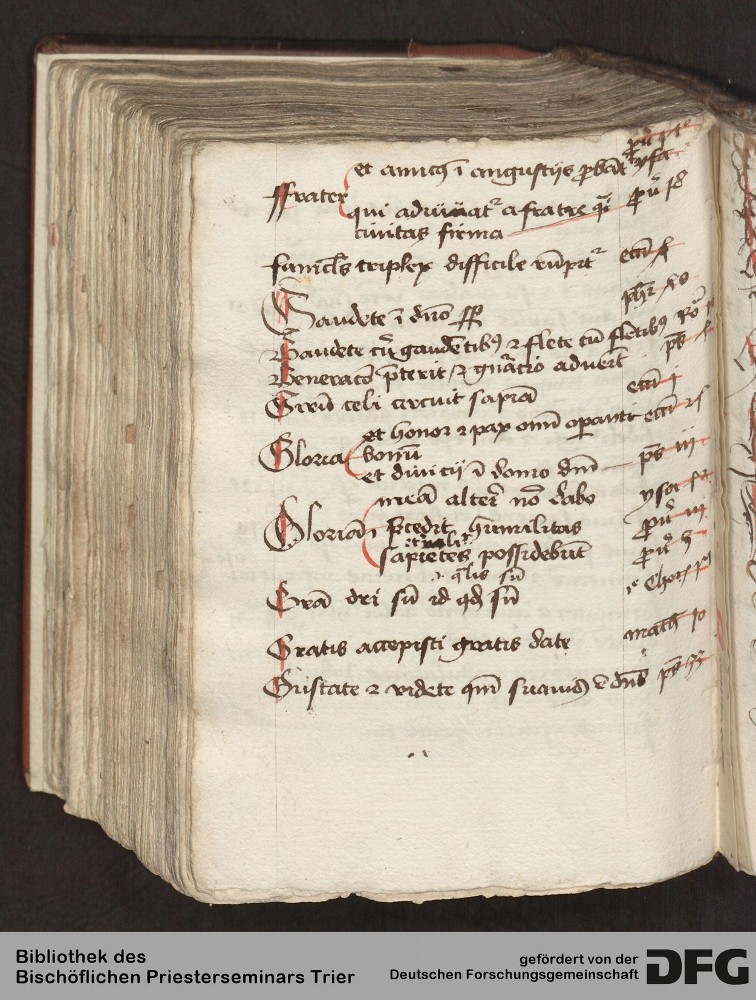 et amicus ĩ angustijs ꝓbat᷑
ysa
ffrater
qui adiuuat᷑ a fratre q̃i ꝓũ 18
ciuitas firma
funicl̃s triplex difficile rũpit᷑ eccĩ 4
Gaudete ĩ dño
Gaudete cũ gaudẽtibꝫ ⁊ flete cũ flẽtibꝫ Ro
Generacõ p̃terit ⁊ gñatio aduẽit
Girũ celi circuit sapĩa eccĩ
Gloria
et honor ⁊ pax omĩ oꝑanti
bonũ
et diuicij ĩ domo eiꝰ p̃s
Gloriã
meã alteri nõ dabo ysa
p̃cedit humilitas
sapiẽtes possidebũt
Grã dei sũ id qd̃ sũ Chor
Gratis accepisti gratis date math 10
Gustate ⁊ videte qm̃ suauis ẽ dñs p̃s
Bibliothek des
Bischöflichen Priesterseminars Trier
gefördert von der
Deutschen Forschungsgemeinschaft
DFG